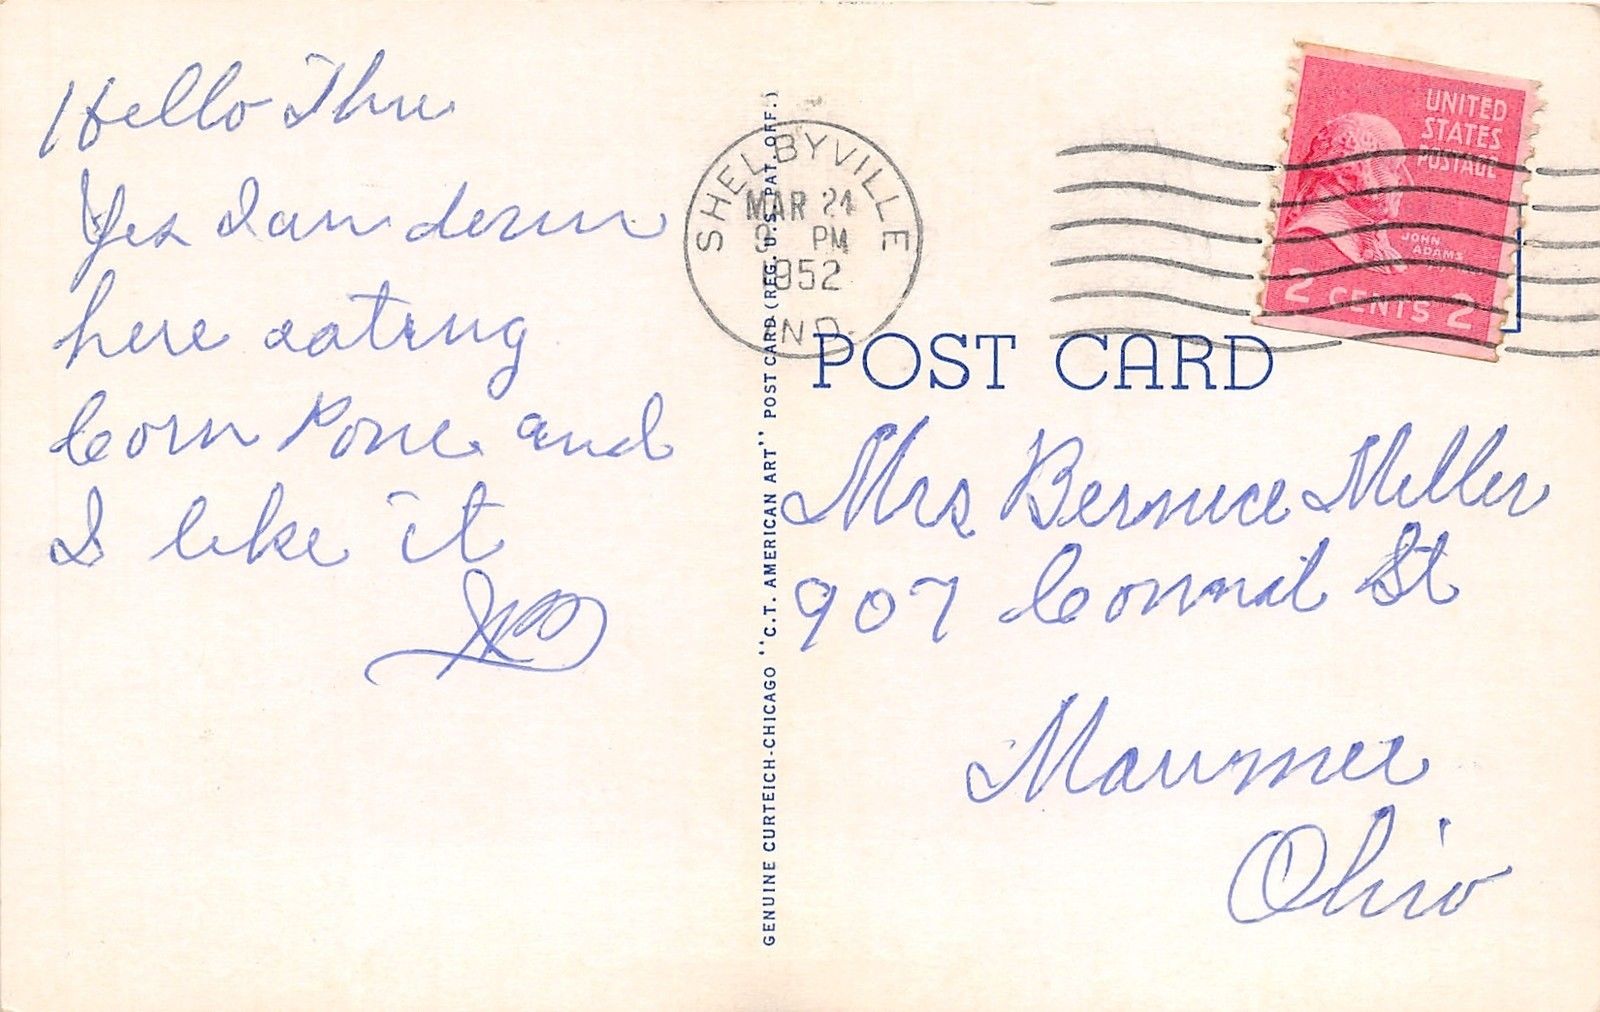 Hello Thru
Yes I am down
here eating
Corn Pone and
I like it
GENUINE CURTEICH-CHICAGO "C.T. AMERICAN ART" POST CARD (REG. U.S. PAT. OFF.)
SHELBYVILLE
MAR 24
PM
1952
IND.
UNITED
STATES
POSTAGE
JOHN
ADAMS
2 CENTS 2
POST CARD
Mrs Bernice Miller
907 St
Maumee
Ohio